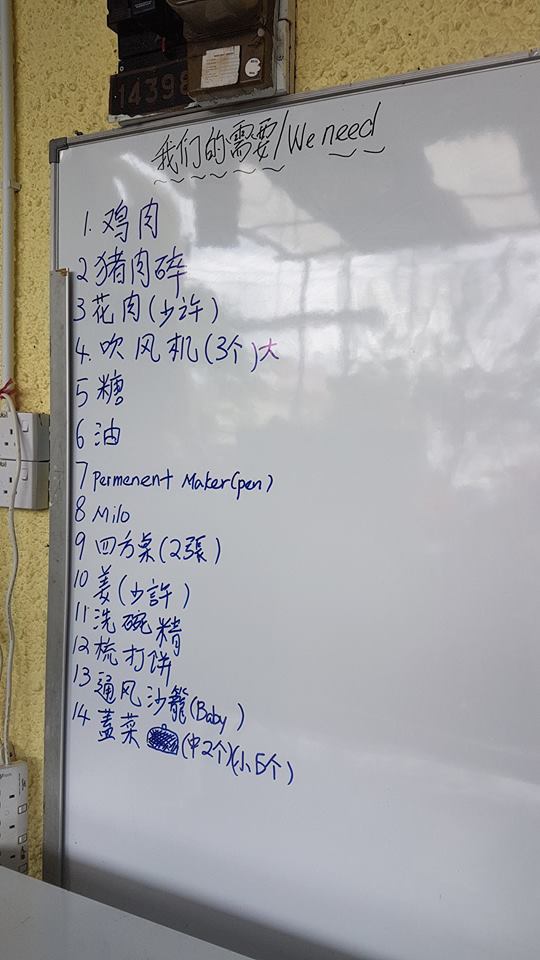 14398
我们的需要/We need
1. 鸡肉
2 猪肉碎
3 花肉(少许)
4. 吹风机(3个)大
5 糖
6 油
7 Permenent Maker(pen)
8 Milo
9 四方桌(2張)
10 姜(少許)
11 洗碗精
12 梳打饼
13 通风沙籠(Baby)
14 蓋菜 (中2个)(小5个)